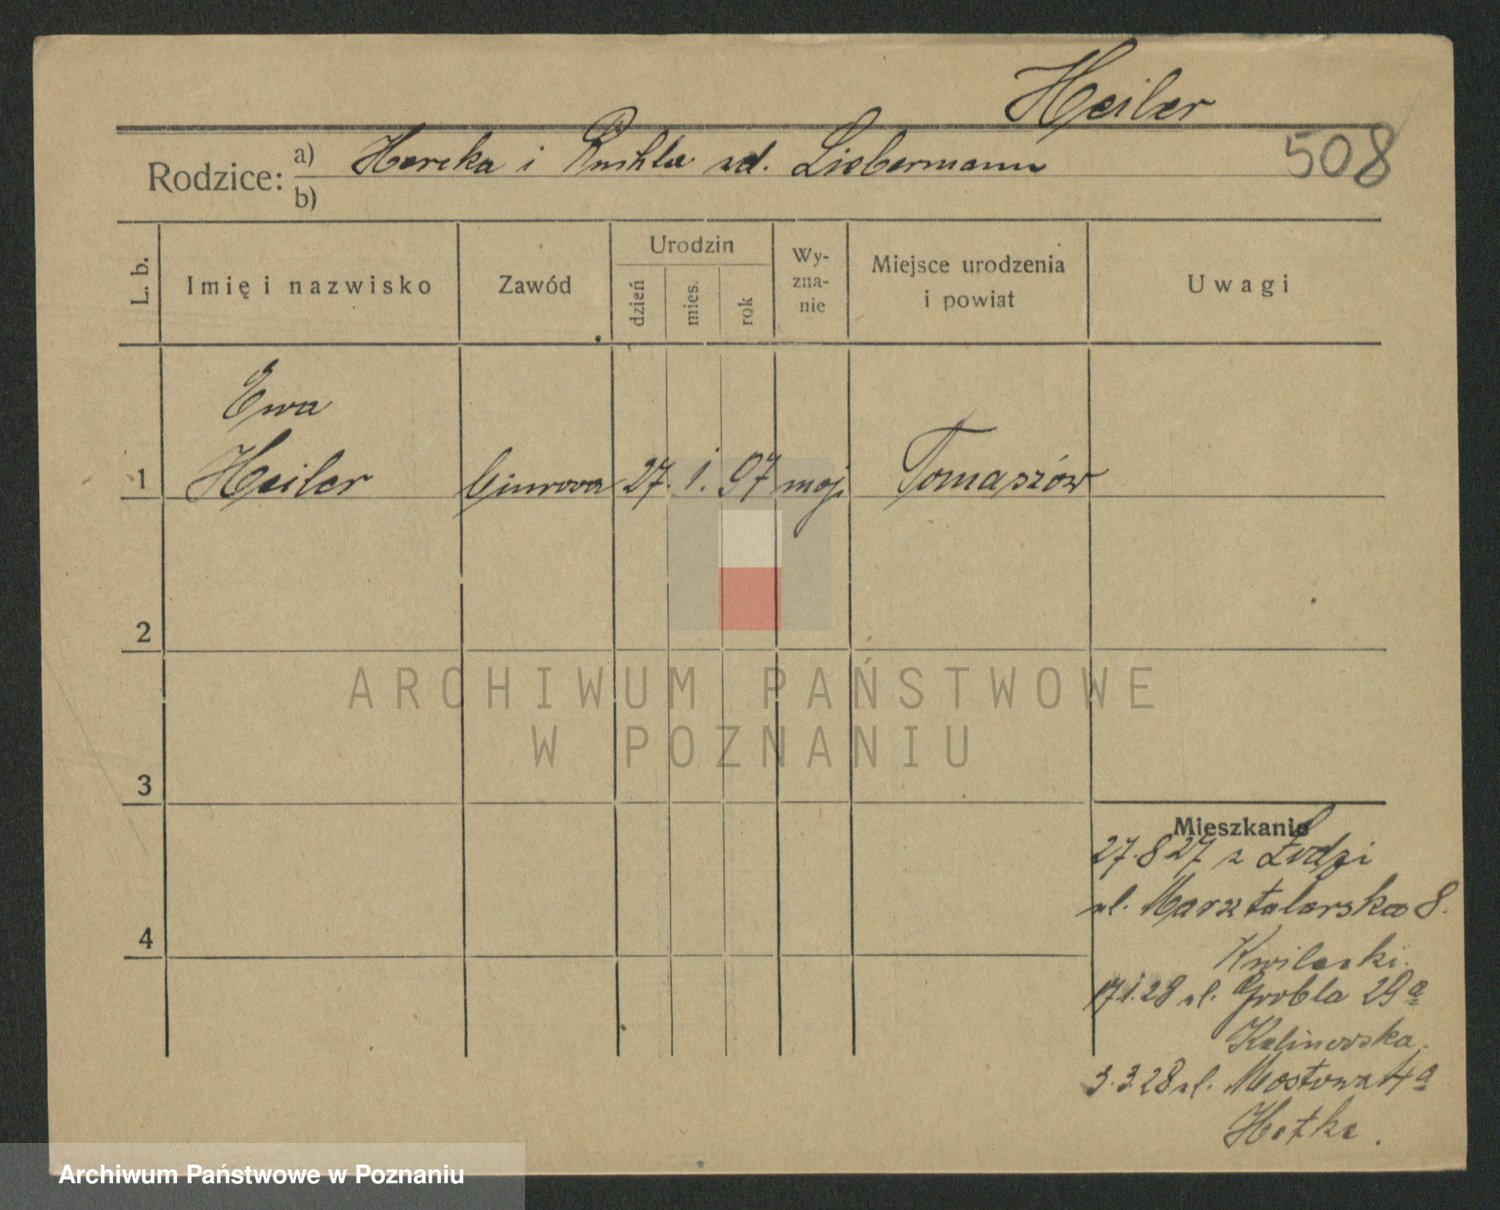 Heiler
508
Rodzice: a) Herska i Ruchla zd. Liebermann
b)
L. b.
Imię i nazwisko
Zawód
Urodzin
dzień
mies.
rok
Wy-
zna-
nie
Miejsce urodzenia
i powiat
Uwagi
Ewa
1 Heiler 27. 1. 97 moj Tomaszów
2
ARCHIWUM PAŃSTWOWE
W POZNANIU
3
Mieszkanie
27.8 27 z Łodzi
4
ul. Marsztalarska 8.
Kwilecki.
17.1.28 ul. Grobla 29a
Kalinowska.
3.3.28 ul. Mostowa 4a
Archiwum Państwowe w Poznaniu